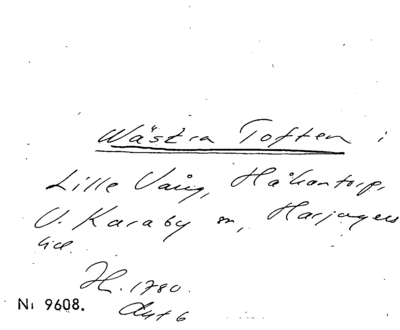 Wästra Toften i
Lille Vång, Håkantorp,
V. Karaby sn, Harjagers
hd.
H. 1780.
Akt 6
Nr 9608.